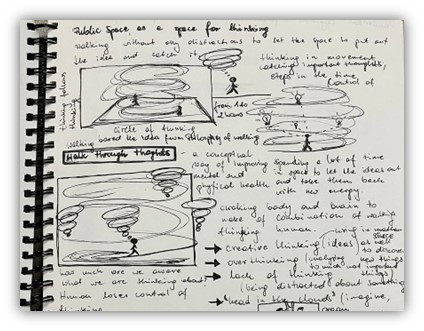 Public Space as a space for thinking
walking without any distractions to let the space to put out
the idea and catch it
thinking in movement
catching important thoughts,
steps in the time
control of
thinking follows
thinking
from 1 to
2 hours
circle of thinking
walking bared the idea from Philosophy of walking
Walk through thoughts
- a conceptual
way of improving
mental and
physical health
spending a lot of time
in space to let the ideas out
and take them back
with new energy
working body and brain to
make of combination of walking
thinking human.
creative thinking (ideas as well
to discover
new things
overthinking (analyzing
to much not important
things)
lack of thinking
(being distracted about something
"head in the clouds" (imagine,
has much are we aware
what we are thinking about?
Human loses control of
thinking